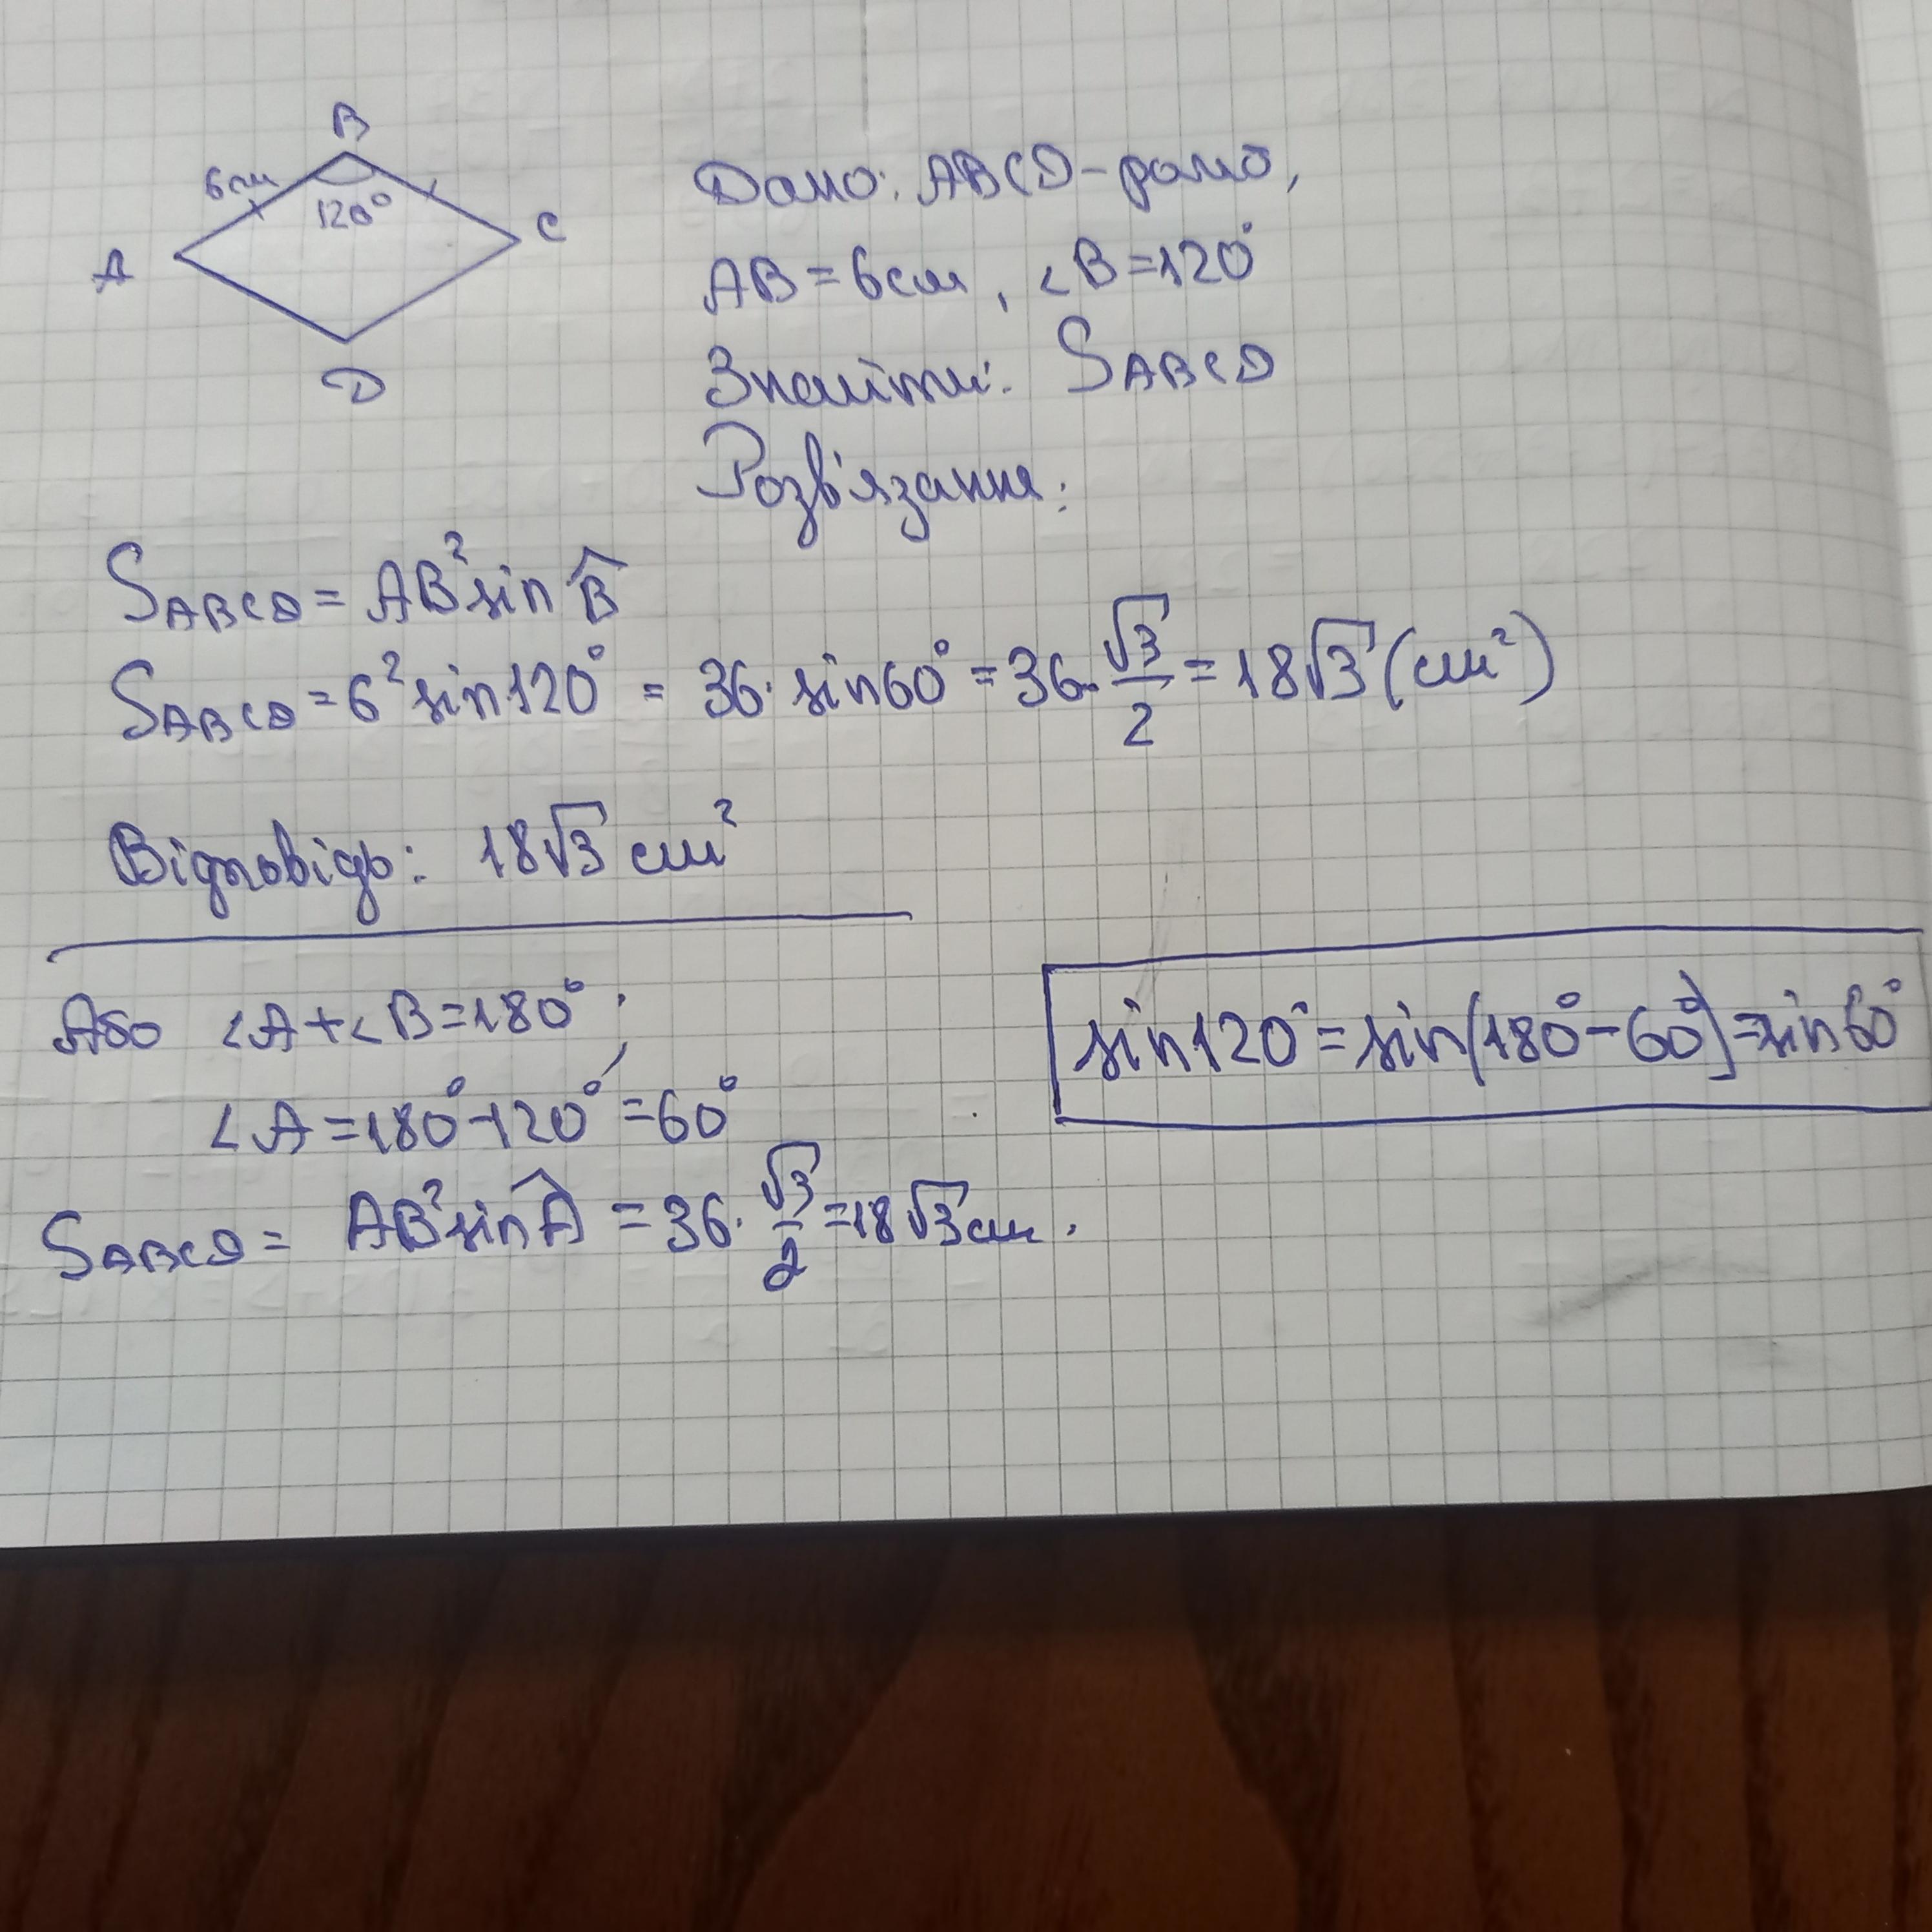 B
6см
120°
A
C
D
Дано: ABCD-ромб,
AB = 6см, ∠B=120°
Знайти: S_ABCD
Розв'язання:
S_ABCD = AB² sin B̂
S_ABCD = 6² sin120° = 36· sin60° = 36· √3/2 = 18√3 (см²)
Відповідь: 18√3 см²
Або ∠A+∠B=180°;
∠A=180°-120°=60°
S_ABCD = AB² sin Â = 36· √3/2 = 18√3 см.
sin120°=sin(180°-60°)=sin60°